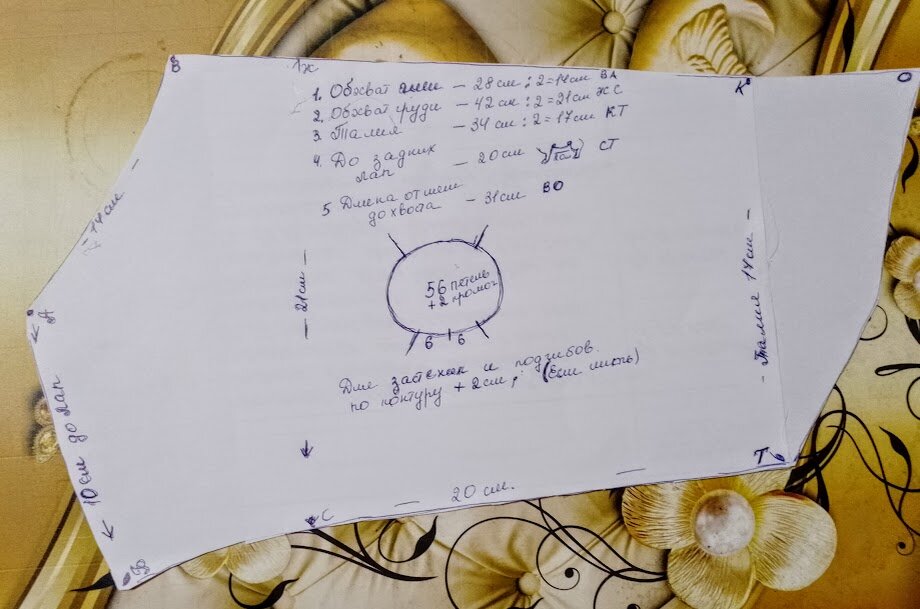 В
Ж
К
О
1. Обхват шеи – 28 см : 2 = 14 см ВА
2. Обхват груди – 42 см : 2 = 21 см ЖС
3. Талия – 34 см : 2 = 17 см КТ
4. До задних
лап – 20 см СТ
5 Длина от шеи
до хвоста – 31 см ВО
14 см
А
10 см до лап
Б
– 21 см –
56 петель
+ 2 кромоч
6 6
Для застежек и подгибов
по контуру + 2 см, (Если шить)
– Талия 17 см –
Т
С
– 20 см. –